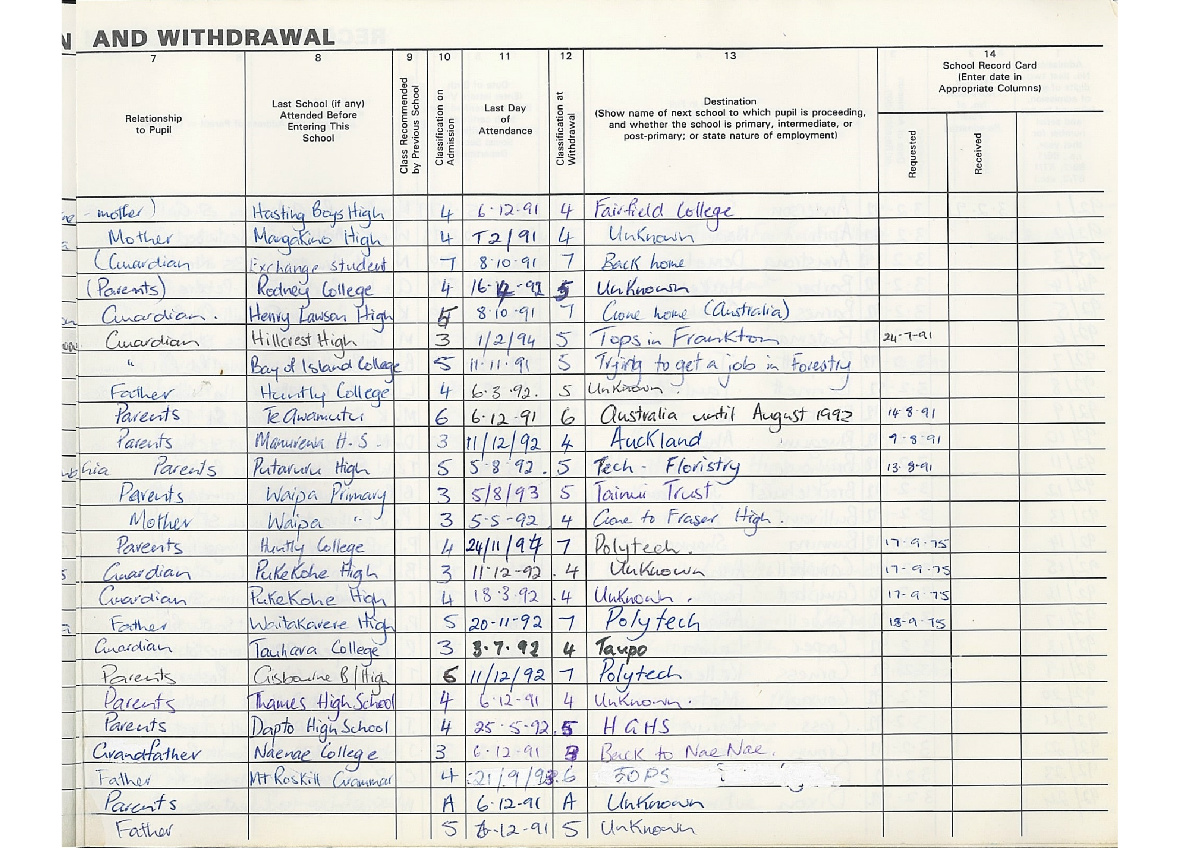 AND WITHDRAWAL
7 8 9 10 11 12 13 14
Relationship to Pupil
Last School (if any) Attended Before Entering This School
Class Recommended by Previous School
Classification on Admission
Last Day of Attendance
Classification at Withdrawal
Destination
(Show name of next school to which pupil is proceeding, and whether the school is primary, intermediate, or post-primary; or state nature of employment)
School Record Card
(Enter date in Appropriate Columns)
Requested
Received
mother) Hasting Boys High 4 6·12·91 4 Fairfield College
Mother Mangakino High 4 T2/91 4 Unknown
(Guardian Exchange student 7 8·10·91 7 Back home
(Parents) Rodney College 4 16-12-92 5 Unknown
Guardian. Henry Lawson High 5 8·10·91 7 Gone home (Australia)
Guardian Hillcrest High 3 1/2/94 5 Tops in Frankton 24-7-91
" Bay of Island College 5 11·11·91 5 Trying to get a job in Forestry
Father Huntly College 4 6·3·92. 5 Unknown.
Parents Te Awamutu 6 6·12·91 6 Australia until August 1992 14·8·91
Parents Manurewa H.S 3 11/12/92 4 Auckland 9-8-91
hia Parents Putaruru High 5 5-8-92. 5 Tech - Floristry 13·8·91
Parents Waipa Primary 3 5/8/93 5 Tainui Trust
Mother Waipa " 3 5-5-92 4 Gone to Fraser High.
Parents Huntly College 4 24/11/94 7 Polytech. 17-9-75
Guardian Pukekohe High 3 11·12-92 .4 Unknown 17-9-75
Guardian Pukekohe High 4 18·3·92 .4 Unknown. 17-9-75
Father Waitakarere High 5 20-11-92 7 Polytech 18-9-75
Guardian Tauhara College 3 3·7·92 4 Taupo
Parents Gisbourne B/High 6 11/12/92 7 Polytech
Parents Thames High School 4 6·12-91 4 Unknown.
Parents Dapto High School 4 25·5-92. 5 HGHS
Grandfather Naenae College 3 6·12·91 3 Back to Nae Nae.
Father Mt Roskill Grammar 4 21/9/93. 6 TOPS
Parents A 6·12-91 A Unknown
Father 5 6-12-91 5 Unknown